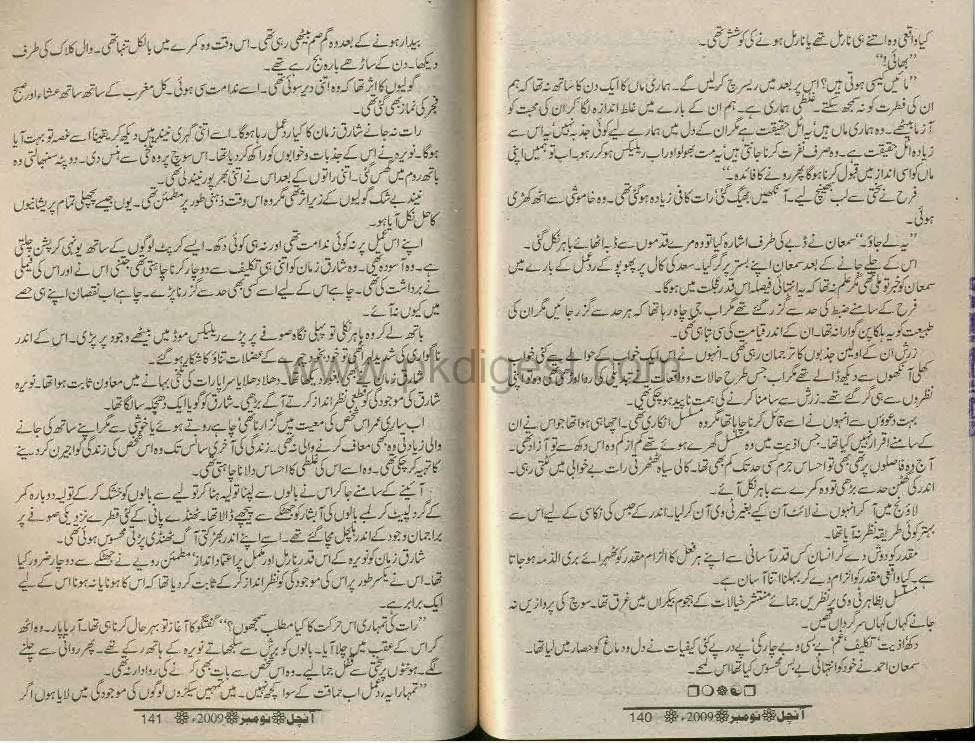 کیا واقعی وہ اتنے ہی نارمل تھے یا نارمل ہونے کی کوشش تھی۔
”بھائی!“
”مائیں کیسی ہوتی ہیں؟ اس پر بعد میں ریسرچ کرلیں گے۔ ہماری ماں کا ایک دن کا ساتھ نہ تھا کہ ہم
ان کی فطرت کو نہ سمجھ سکتے۔ غلطی ہماری ہے۔ ہم ان کے بارے میں غلط اندازہ لگا کر ان کی محبت کو
آزما بیٹھے۔ وہ ہماری ماں ہیں‘ یہ اٹل حقیقت ہے مگر ان کے دل میں ہمارے لیے کوئی جذبہ نہیں‘ یہ اس سے
زیادہ اٹل حقیقت ہے۔ وہ صرف نفرت کرنا جانتی ہیں‘ یہ مت بھولو اور اب ریلیکس ہو کر رہو۔ اب تو ہمیں اپنی
ماں کو اسی انداز میں قبول کرنا ہوگا پھر رونے کا فائدہ۔“
فرح نے سختی سے لب بھینچ لیے۔ آنکھیں بھیگ گئیں‘ رات کافی زیادہ ہوگئی تھی۔ وہ خاموشی سے اٹھ کھڑی
ہوئی۔
”یہ لے جاؤ۔“ سمعان نے ڈبے کی طرف اشارہ کیا تو وہ مرے قدموں سے ڈبہ اٹھائے باہر نکل گئی۔
اس کے چلے جانے کے بعد سمعان اپنے بستر پر گر گیا۔ سعد کی کال پر پھوپو کے ردعمل کے بارے میں
سمعان کو خبر تو ملی تھی مگر علم نہ تھا کہ یہ انتہائی فیصلہ اس قدر عجلت میں ہوگا۔
فرح کے سامنے ضبط کی حد سے گزر گئے تھے مگر اب جی چاہ رہا تھا کہ ہر حد سے گزر جائیں مگر ان کی
طبیعت کو یہ ہلکا پن گوارا نہ تھا۔ ان کے اندر قیامت کی سی تباہی تھی۔
زرش ان کے اولین جذبوں کا ترجمان رہی تھی۔ انہوں نے اس ایک خواب کے حوالے سے کئی خواب
کھلی آنکھوں سے دیکھ ڈالے تھے مگر اب جس طرح حالات و واقعات نے تبدیلی کی رہ اوڑھی تھی وہ تو اپنی
نظروں سے ہی گر گئے تھے۔ زرش سے سامنا کرنے کی ہمت ناپید ہوچکی تھی۔
بہت دعوؤں سے انہوں نے اسے قائل کرنا چاہا تھا مگر وہ مسلسل انکاری تھی۔ اچھا ہی ہوا تھا جو اس نے ان
کے سامنے اقرار نہیں کیا تھا۔ جس اذیت میں وہ مسلسل گھرے ہوئے تھے کم از کم وہ اس دکھ سے تو آزاد تھی۔
آج وہ فاصلوں پر تھی بھی تو احساس جرم کسی حد تک کم بھی تھا۔ کالی سیاہ ٹھٹھرتی رات بے خوابی میں کٹتی رہی۔
اندر کی گھٹن حد سے بڑھی تو وہ کمرے سے باہر نکل آئے۔
لاؤنج میں آکر انہوں نے لائٹ آن کیے بغیر ٹی وی آن کرلیا۔ اندر کے حبس کی نکاسی کے لیے اس سے
بہتر کوئی طریقہ نظر نہ آیا تھا۔
مقدر کو دوش دے کر انسان کس قدر آسانی سے اپنے ہر فعل کا الزام مقدر کو ٹھہرائے بری الذمہ ہوجاتا
ہے۔ کیا واقعی مقدر کو الزام دے کر بہلنا اتنا آسان ہے۔
مسلسل بظاہر ٹی وی پر نظریں جمائے منتشر خیالات کے ہجوم بیکراں میں غرق تھا۔ سوچ کی پروازیں نہ
جانے کہاں کہاں سرگرداں تھیں۔
دکھ‘ اذیت‘ تکلیف‘ غم‘ بے بسی و بے چارگی‘ پے در پے کئی کیفیات نے دل و دماغ کو حصار میں لیا تھا۔
سمعان احمد نے خود کو انتہائی بے بس محسوس کیا تھا اس لمحے۔
آنچل نومبر 2009ء 140
بیدار ہونے کے بعد وہ گم صم بیٹھی رہی تھی۔ اس وقت وہ کمرے میں بالکل تنہا تھی۔ وال کلاک کی طرف
دیکھا۔ دن کے ساڑھے بارہ بج رہے تھے۔
گولیوں کا اثر تھا کہ وہ اتنی دیر سوئی تھی۔ اسے ندامت سی ہوئی۔ کل مغرب کے ساتھ ساتھ عشاء اور صبح
فجر کی نماز بھی گئی تھی۔
رات نہ جانے شارق زمان کا کیا ردعمل رہا ہوگا۔ اسے اتنی گہری نیند میں دیکھ کر یقیناً اسے غصہ تو بہت آیا
ہوگا۔ نویرہ نے اس کے جذبات و خوابوں کو راکھ کردیا تھا۔ اس سوچ پر وہ تلخی سے ہنس دی۔ دوپٹہ سنبھالتی وہ
باتھ روم میں گھس گئی۔ اتنی راتوں کے بعد اس نے اتنی بھرپور نیند لی تھی۔
نیند بے شک گولیوں کے زیراثر تھی مگر وہ اس وقت ذہنی طور پر مطمئن تھی۔ یوں جیسے پچھلی تمام پریشانیوں
کا حل نکل آیا ہو۔
اپنے اس عمل پر نہ کوئی ندامت تھی اور نہ ہی کوئی دکھ۔ ایسے کرپٹ لوگوں کے ساتھ یونہی کرپشن چلتی
ہے۔ وہ آسودہ تھی۔ وہ شارق زمان کو اتنی ہی تکلیف سے دوچار کرنا چاہتی تھی جتنی اس نے اور اس کی فیملی
نے برداشت کی تھی۔ چاہے اس کے لیے اسے کسی بھی حد سے گزرنا پڑے۔ چاہے اب نقصان اپنے ہی حصے
میں کیوں نہ آئے۔
باتھ لے کر وہ باہر نکلی تو پہلی نگاہ صوفے پر پڑے ریلیکس موڈ میں بیٹھے وجود پر پڑی۔ اس کے اندر
ناگواری کی شدید لہر اٹھی تو خود بخود چہرے کے عضلات تناؤ کا شکار ہوگئے۔
شارق زمان نے بھی بغور دیکھا تھا۔ دھلا دھلایا سراپا رات کی تلخی بہانے میں معاون ثابت ہوا تھا۔ نویرہ
شارق کی موجودگی کو قطعی نظر انداز کرتے آگے بڑھی۔ شارق کو گویا ایک دھچکہ سا لگا تھا۔
اب ساری عمر اس شخص کی معیت میں گزارنا تھی‘ چاہے روتے ہوئے یا خوشی سے مگر اپنے ساتھ کی جانے
والی زیادتی وہ کبھی معاف کرنے والی نہ تھی۔ زندگی کی آخری سانس تک وہ اس شخص کی زندگی کو اجیرن کردینے
کا تہیہ کرچکی تھی۔ وہ اسے اس کی غلطی کا احساس دلانا چاہتی تھی۔
آئینے کے سامنے جاکر اس نے بالوں سے لپٹا تولیہ ہٹا کر تولیے سے بالوں کو خشک کرکے تولیہ دوبارہ کمر
کے گرد لپیٹ کر لمبے بالوں کی آبشار کو جھٹکے سے پیچھے ڈالا تھا۔ ٹھنڈے پانی کے کئی قطرے نزدیکی صوفے پر
براجمان وجود کے اندر ہلچل مچا گئے تھے۔ اسے اپنے اندر بھڑکتی آگ ٹھنڈی پڑتی محسوس ہوئی تھی۔
شارق زمان کو نویرہ کے اس قدر نارمل اور مکمل پراعتماد انداز‘ مطمئن رویے نے جھٹکے سے دوچار ضرور کیا
تھا۔ اس نے یکسر طور پر اس کی موجودگی کو نظر انداز کرکے ثابت کردیا تھا کہ اس کا ہونا یا نہ ہونا اس کے لیے
ایک برابر ہے۔
”رات کی تمہاری اس حرکت کا کیا مطلب سمجھوں؟“ گفتگو کا آغاز تو بہرحال کرنا ہی تھا۔ آر یا پار۔ وہ اٹھ
کر اس کے عقب میں چلا آیا۔ بالوں کو برش سے سلجھاتے نویرہ کے ہاتھ رکے تھے۔ پھر روانی سے چلنے
لگے۔ ہونٹوں پر سختی سے قفل جما لیے۔ وہ اس شخص سے بات بھی کرنے کی روادار نہ تھی۔
”تمہارا یہ ردعمل اب حماقت کے سوا کچھ نہیں۔ میں تمہیں سیکڑوں لوگوں کی موجودگی میں لایا ہوں اگر
آنچل نومبر 2009ء 141
www.pkdigest.com